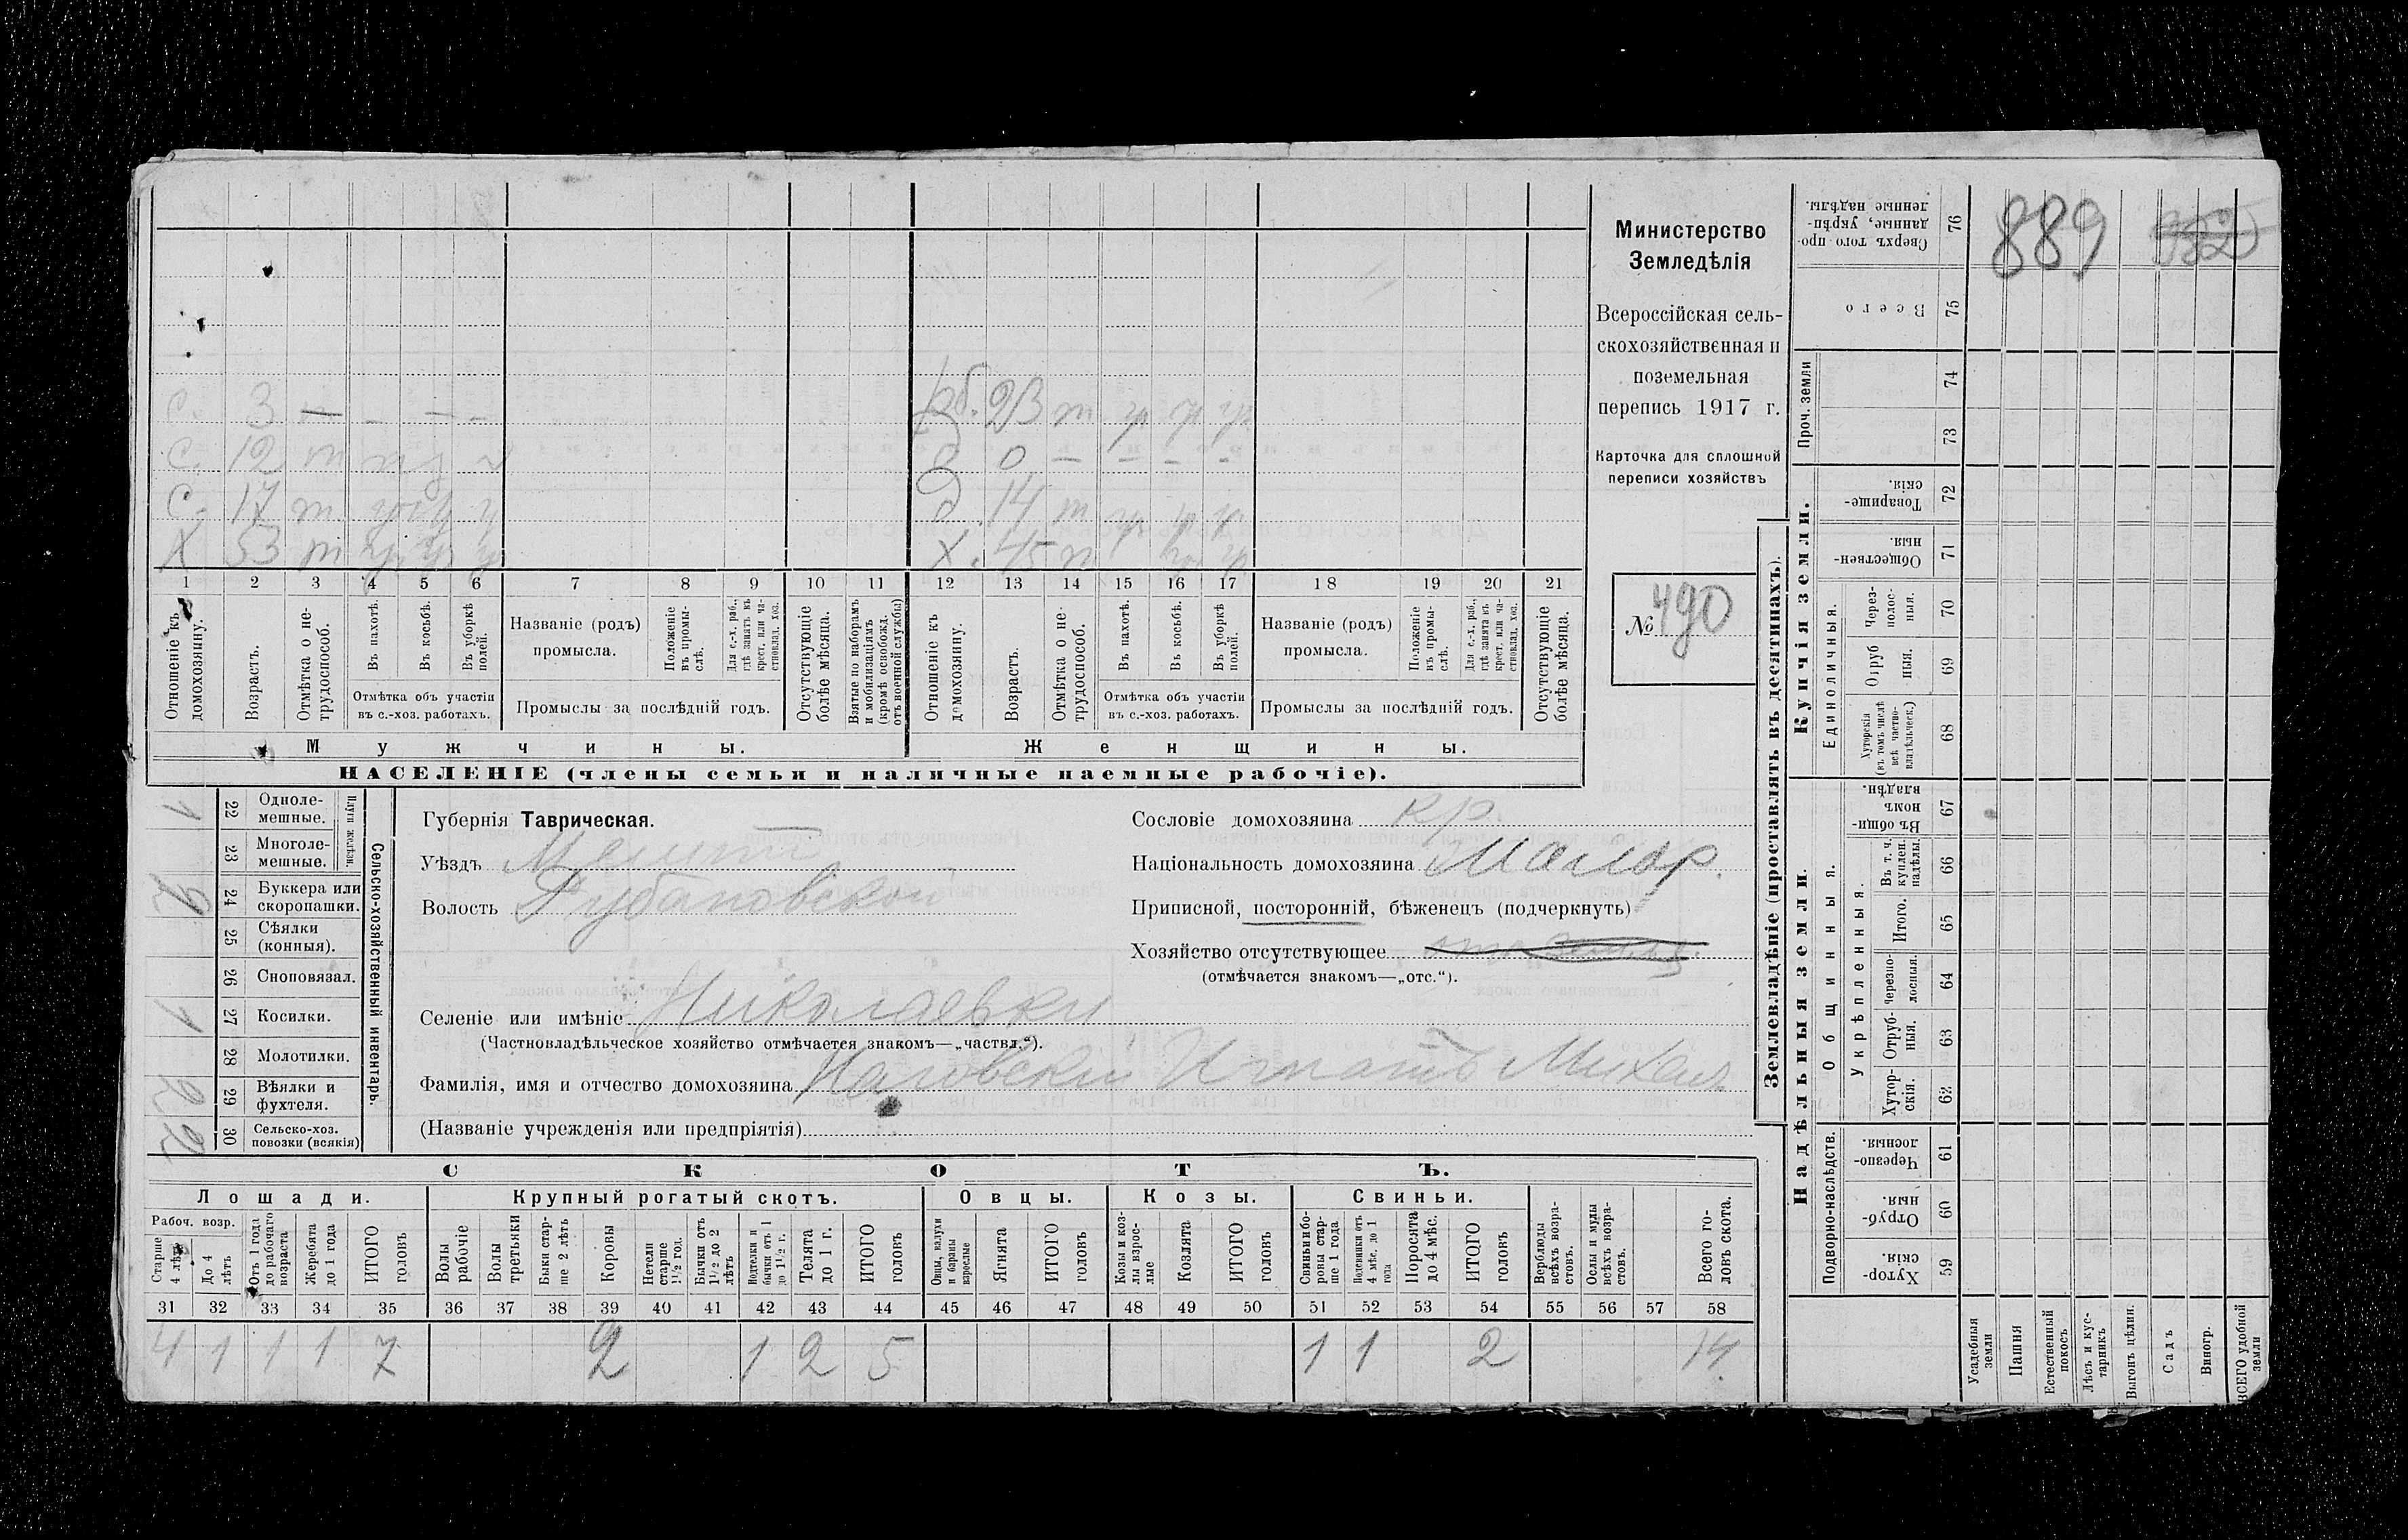 Министерство
Земледѣлія
Всероссійская сель-
скохозяйственная и
поземельная
перепись 1917 г.
Карточка для сплошной
переписи хозяйствъ
№ 490
889
с. 3 — - — -
с. 12 т
с. 17 т
х 53 т
23 т
0 — — - -
д 14 т
х. 45 т
1 2 3 4 5 6 7 8 9 10 11 12 13 14 15 16 17 18 19 20 21
Отношеніе къ домохозяину.
Возрастъ.
Отмѣтка о не-трудоспособ.
Въ пахотѣ.
Въ косьбѣ.
Въ уборкѣ полей.
Отмѣтка объ участіи
въ с.-хоз. работахъ.
Названіе (родъ)
промысла.
Положеніе въ промы-слѣ.
Для с.-х. раб., гдѣ занятъ въ крест. или ча-стновлад. хоз.
Промыслы за послѣдній годъ.
Отсутствующіе болѣе мѣсяца.
Взятые по наборамъ и мобилизаціямъ (кромѣ освобожд. отъ военной службы)
Отношеніе къ домохозяину.
Возрастъ.
Отмѣтка о не-трудоспособ.
Въ пахотѣ.
Въ косьбѣ.
Въ уборкѣ полей.
Отмѣтка объ участіи
въ с.-хоз. работахъ.
Названіе (родъ)
промысла.
Положеніе въ промы-слѣ.
Для с.-х. раб., гдѣ занята въ крест. или ча-стновлад. хоз.
Промыслы за послѣдній годъ.
Отсутствующіе болѣе мѣсяца.
Мужчины. Женщины.
НАСЕЛЕНІЕ (члены семьи и наличные наемные рабочіе).
Сельско-хозяйственный инвентарь.
Плуги желѣзн.
1 22 Одноле-мешные.
23 Многоле-мешные.
2 24 Буккера или скоропашки.
25 Сѣялки (конныя).
26 Сноповязал.
1 27 Косилки.
28 Молотилки.
2 29 Вѣялки и фухтеля.
2 30 Сельско-хоз. повозки (всякія)
Губернія Таврическая.
Уѣздъ Мелит
Волость Рубановской
Селеніе или имѣніе Николаевки
(Частновладѣльческое хозяйство отмѣчается знакомъ—„частвл.“).
Фамилія, имя и отчество домохозяина Игнатъ Михаил
(Названіе учрежденія или предпріятія)
Сословіе домохозяина кр.
Національность домохозяина Малор.
Приписной, посторонній, бѣженецъ (подчеркнуть)
Хозяйство отсутствующее
(отмѣчается знакомъ—„отс.“).
СКОТЪ.
Лошади. Крупный рогатый скотъ. Овцы. Козы. Свиньи.
Рабоч. возр.
Старше 4 лѣтъ
До 4 лѣтъ
Отъ 1 года до рабочаго возраста
Жеребята до 1 года
ИТОГО головъ
Волы рабочіе
Волы третьяки
Быки стар-ше 2 лѣтъ
Коровы
Нетели старше 1½ год.
Бычки отъ 1½ до 2 лѣтъ
Подтелки и бычки отъ 1 до 1½ г.
Телята до 1 г.
ИТОГО головъ
Овцы, валухи и бараны взрослые
Ягнята
ИТОГО головъ
Козы и коз-лы взрос-лые
Козлята
ИТОГО головъ
Свиньи и бо-ровы стар-ше 1 года
Подсвинки отъ 4 мѣс. до 1 года
Поросята до 4 мѣс.
ИТОГО головъ
Верблюды всѣхъ возра-стовъ.
Ослы и мулы всѣхъ возра-стовъ.
Всего го-ловъ скота.
31 32 33 34 35 36 37 38 39 40 41 42 43 44 45 46 47 48 49 50 51 52 53 54 55 56 57 58
4 1 1 1 7 2 1 2 5 1 1 2 14
Землевладѣніе (проставлять въ десятинахъ).
Купчія земли.
Надѣльныя земли.
Сверхъ того про-данные, укрѣп-ленные надѣлы. 76
Всего 75
Проч. земли 74
73
Товарище-скія. 72
Обществен-ныя. 71
Единоличныя.
Через-полос-ныя. 70
Отруб ныя. 69
Хуторскія (въ томъ числѣ всѣ частно-владѣльческ.) 68
Общинныя.
Въ общи-номъ владѣн. 67
Укрѣпленныя.
Въ т. ч. куплен. надѣлы. 66
Итого. 65
Черезпо-лосныя. 64
Отруб-ныя. 63
Хутор-скія. 62
Подворно-наслѣдств.
Черезпо-лосныя. 61
Отруб-ныя. 60
Хутор-скія. 59
Усадебныя земли
Пашня
Естественный покосъ
Лѣсъ и кус-тарникъ
Выгонъ цѣлин.
Садъ
Виногр.
ВСЕГО удобной земли